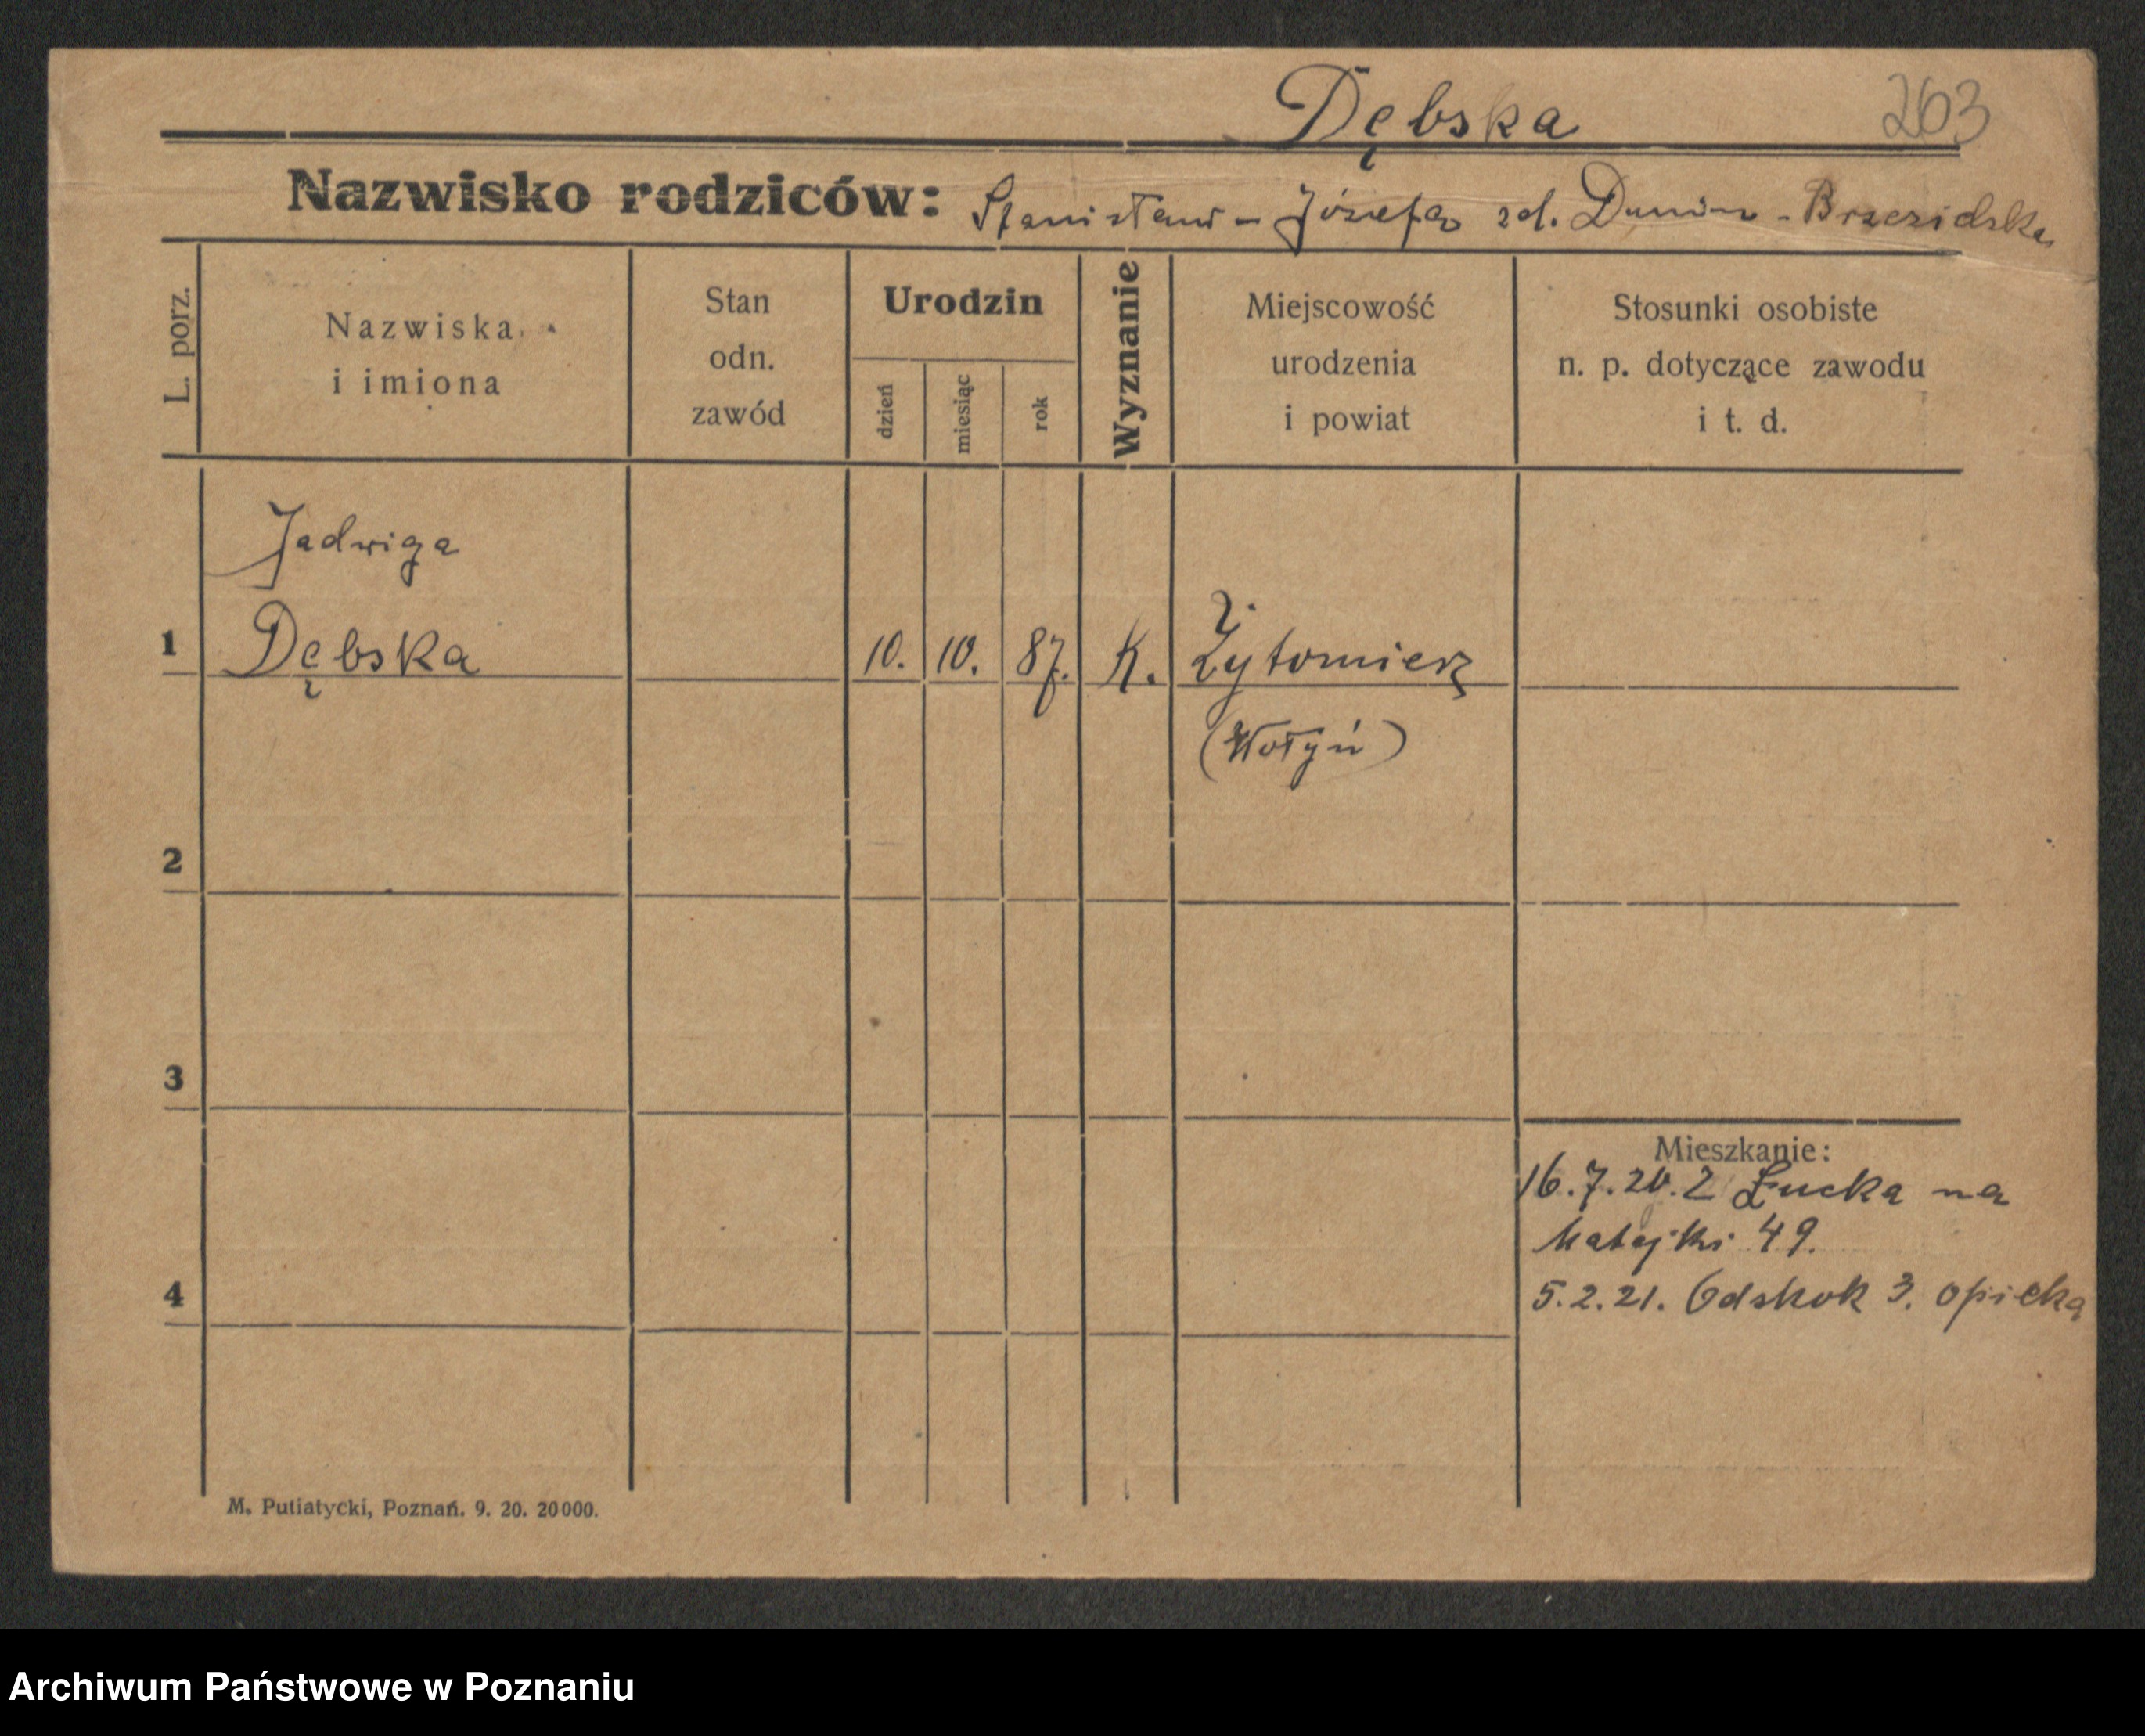 Dębska 263
Nazwisko rodziców: Stanisław - Józefa zd. Dunin -
L. porz.
Nazwiska
i imiona
Stan
odn.
zawód
Urodzin
dzień
miesiąc
rok
Wyznanie
Miejscowość
urodzenia
i powiat
Stosunki osobiste
n. p. dotyczące zawodu
i t. d.
Jadwiga
1 Dębska 10. 10. 87. K. Żytomierz
(Wołyń)
2
3
Mieszkanie:
16.7.20. Z Łucka na
Matejki 49.
4 5.2.21. Odskok 3. opieka
M. Putiatycki, Poznań. 9. 20. 20000.
Archiwum Państwowe w Poznaniu